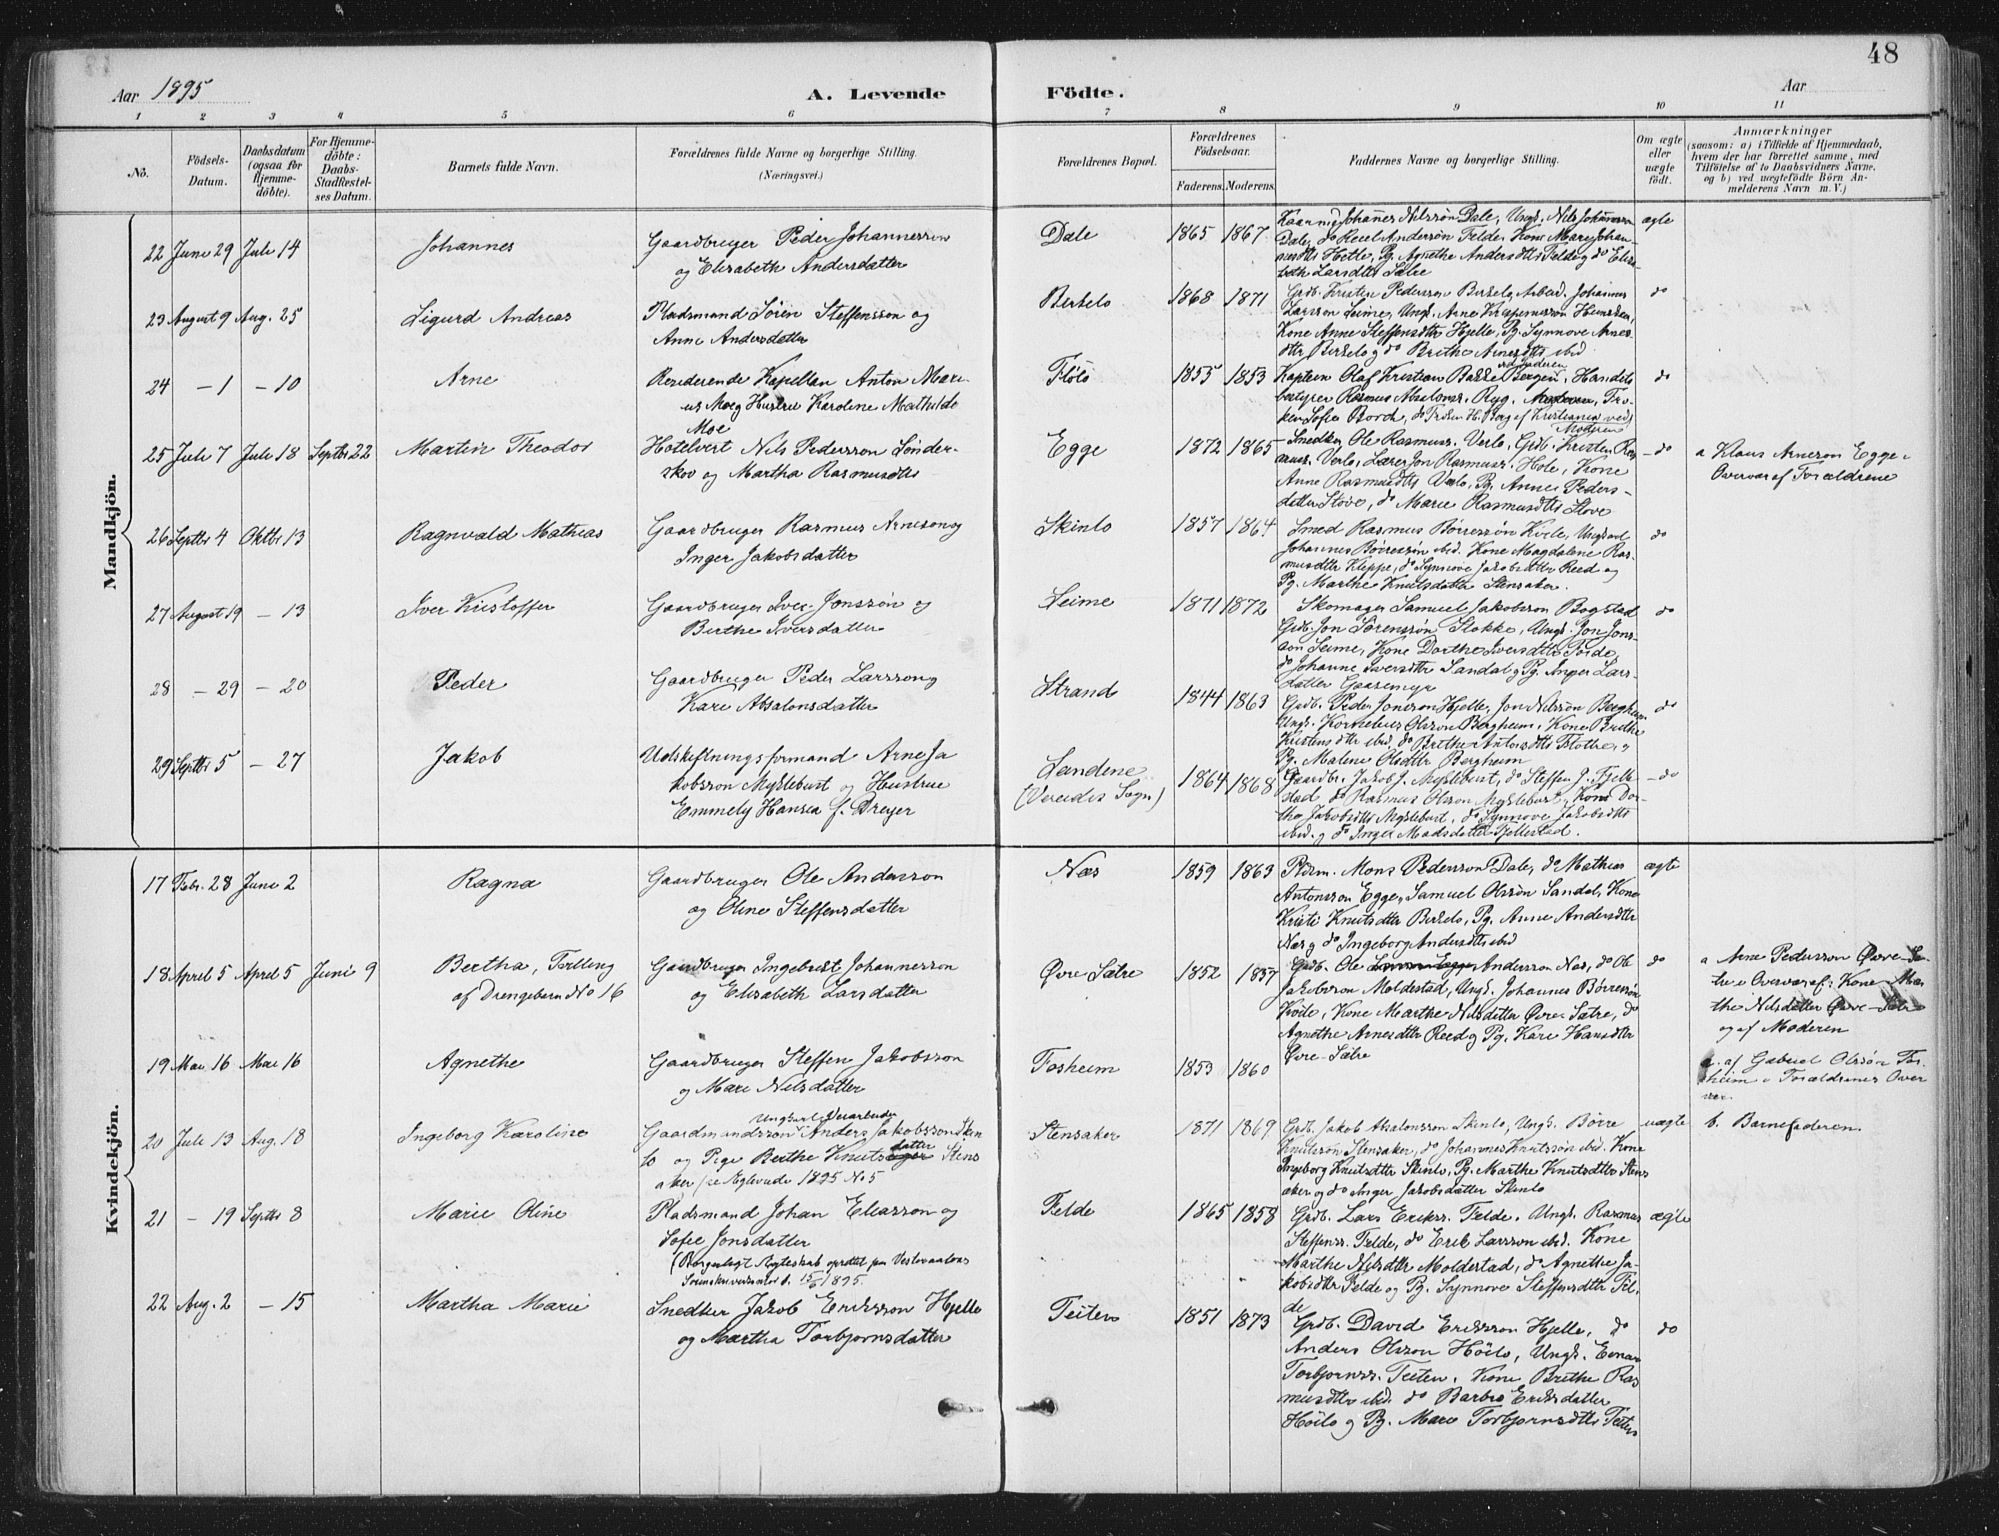 48
Aar 1895
A. Levende
Födte.
Aar
1
2
3
4
5
6
7
8
9
10
11
No.
Födsels-
Datum.
Daabsdatum
(ogsaa for
Hjemme-
döbte).
For Hjemme-
döbte:
Daabs-
Stadfestel-
ses Datum.
Barnets fulde Navn.
Forældrenes fulde Navne og borgerlige Stilling.
(Næringsvei.)
Forældrenes Bopæl.
Forældrenes
Födselsaar.
Faderens.
Moderens.
Faddernes Navne og borgerlige Stilling.
Om ægte
eller
uægte
födt.
Anmærkninger
(saasom: a) i Tilfælde af Hjemmedaab,
hvem der har forrettet samme, med
Tilföielse af to Daabsvidners Navne,
og b) ved uægtefödte Börn An-
melderens Navn m. V.)
Mandkjön.
22 Juni 29 Juli 14
Johannes
Gaardbruger Peder Johannesson
og Elisabeth Andersdatter
Dale
1865 1867
Johannes Nilssön Dale, Ungk. Nils Johannesson
Dale, do Andersön Felde, Kone Mari Johan-
nesdtr Hetle, Pg. Agnethe Andersdtr Felde og do Elisa-
beth Larsdtr Sætre
ægte
23 August 9 Aug. 25
Sigurd Andreas
Pladsmand Sören Steffensson og
Anne Andersdatter
Birkelo
1868 1871
Grdb. Kristen Pedersson Birkelo, Arbeid. Johannes
Larsson Seime, Ungk. Arne
Kone Anne Steffensdtr Hjelle, Pg. Synnove Arnes-
dtr Birkelo og do Brithe Arnesdtr ibid
do
24 - 1 - 10
Arne
Residerende Kapellan Anton Mari-
us Moeg Hustru Karoline Mathilde
Moe
Flölo
1855 1853
Kaptein Olaf Kristian Bakke Bergen, Handels-
bestyrer Rasmus Absalonss. Ryg, Frö-
ken Sofie Bord, do Fröken H. Berg af Kristiania ved
Moderen
do
25 Juli 7 Juli 18 Septbr 22
Martin Theodor
Hotelvert Nils Pedersson Sönder-
skov og Martha Rasmusdtr
Egge
1872 1865
Snedker Ole Rasmuss. Verlo, Grdb. Kristen Ras-
muss. Verlo, Lærer Jon Rasmuss. Hole, Kone
Anne Rasmusdtr Verlo, Pg. Anne Peders-
datter Stove, do Marie Rasmusdtr Stove
do
a Klaus Arneson Egge i
Overvær af Forældrene
26 Septbr 4 Oktbr 13
Ragnvald Mathias
Gaardbruger Rasmus Arneson og
Inger Jakobsdatter
Skinlo
1857 1864
Smed Rasmus Börressön Kvile, Ungkarl
Johannes Börressön ibid. Kone Magdalene Ras-
musdtr Kleppe, do Synnöve Jakobsdatter Reed og
Pg. Marthe Knutsdatter Stensaker.
do
27 August 19 - 13
Iver Kristoffer
Gaardbruger Iver Jonssön og
Berthe Iversdatter
Seime
1871 1872
Skomager Samuel Jakobsson Bogstad
Grdb. Jon Sörenssön Stokke, Ungk. Jon Jons-
son Seime, Kone Dorthe Iversdtr Förde,
do Johanne Iversdtr Sandal og Pg. Inger Lars-
datter Gaasemyr
do
28 - 29 - 20
Peder
Gaardbruger Peder Larsson og
Kari Absalonsdatter
Strand
1844 1863
Grdb. Peder Jonsson Hjelle, Jon Nilsson Bergheim
Ungk. Kornelius Olsson Bergheim, Kone Brithe
Kristensdtr ibid, do Brithe Antonsdtr Flothe, og
Pg. Malene Olsdtr Bergheim
do
29 Septbr 5 - 27
Jakob
Udskiftningsformand Arne Ja-
kobsson Myklebust og Hustrue
Emmely Hansea f. Dreyer
Sandene
(Vereides Sogn)
1864 1868
Gaardbr. Jakob J. Myklebust, do Steffen J. Fjelle-
stad, do Rasmus Olsson Myklebust, Kone Dor-
thea Jakobsdtr Myklebust, do Synnove Jakobsdtr
ibid. og do Inger Madsdatter Fjellestad.
do
Kvindekjön.
17 Febr. 28 Juni 2
Ragna
Gaardbruger Ole Andersson
og Oline Steffensdatter
Næs
1859 1863
Pldsm. Mons Pedersson Dale, do Mathias
Antonsson Egge, Samuel Olssön Sandal, Kone
Kristi Knutsdtr Birkelo, Pg. Anne Andersdtr
Næs og do Ingeborg Andersdtr ibid
ægte
18 April 5 April 5 Juni 9
Bertha, Tvilling
af Drengebarn No 16
Gaardbruger Ingebrigt Johannesson
og Elisabeth Larsdatter
Övre Sætre
1852 1857
Grdb. Ole Andersson Næs, do Ole
Jakobsson Moldestad, Ungk. Johannes Börressön
Kvile, Kone Marthe Nilsdatter Övre-Sætre, do
Agnethe Arnesdtr Reed og Pg. Kari Hansdtr
Övre-Sætre
do
a Arne Pedersson Övre-Sæ-
tre i Overvær af: Kone Mar-
the Nilsdatter Övre-Sætre
og af Moderen
19 Mai 16 Mai 16
Agnethe
Gaardbruger Steffen Jakobsson
og Mari Nilsdatter
Fosheim
1853 1860
a. af Gabriel Olssön Fos-
heim i Forældrenes Over-
vær.
20 Juli 13 Aug. 18
Ingeborg Karoline
Ungkarl Veiarbeider
Gaardmandssön Anders Jakobsson Skin-
lo og Pige Berthe Knutsdatter Stens-
aker (se Ægteviede 1895 No 5
Stensaker
1871 1869
Grdb. Jakob Absalonsson Skinlo, Ungk. Börre
Knutssön Stensaker, do Johannes Knutssön ibid. Kone
Ingeborg Knutsdtr Skinlo, Pg. Marthe Knutsdtr Stens-
aker og do Inger Jakobsdatter Skinlo
uægte
b. Barnefaderen.
21 - 19 Septbr 8
Marie Oline
Pladsmand Johan Eliasson og
Sofie Jonsdatter
(Borgerligt Ægteskab oprettet paa Vestervaalens
Sorenskriverkontor d. 15/6 1895.
Felde
1865 1858
Grdb. Lars Erikss. Felde, Ungk. Rasmus
Steffenss. Felde, do Erik Larsson ibid. Kone
Marthe Nilsdtr Moldestad, do Agnethe Ja-
kobsdtr Felde og Pg. Synnove Steffensdtr Fel-
de
ægte
22 Aug. 2 - 15
Martha Marie
Snedker Jakob Eriksson Hjelle
og Martha Torbjornsdatter
Teiten
1851 1873
Grdb. David Eriksson Hjelle, do
Anders Olsson Höilo, Ungk. Einar
Torbjornss. Teiten, Kone Brithe Ras-
musdtr ibid. do Barbro Eriksdatter
Höilo og Pg. Mari Torbjornsdtr Teiten
do